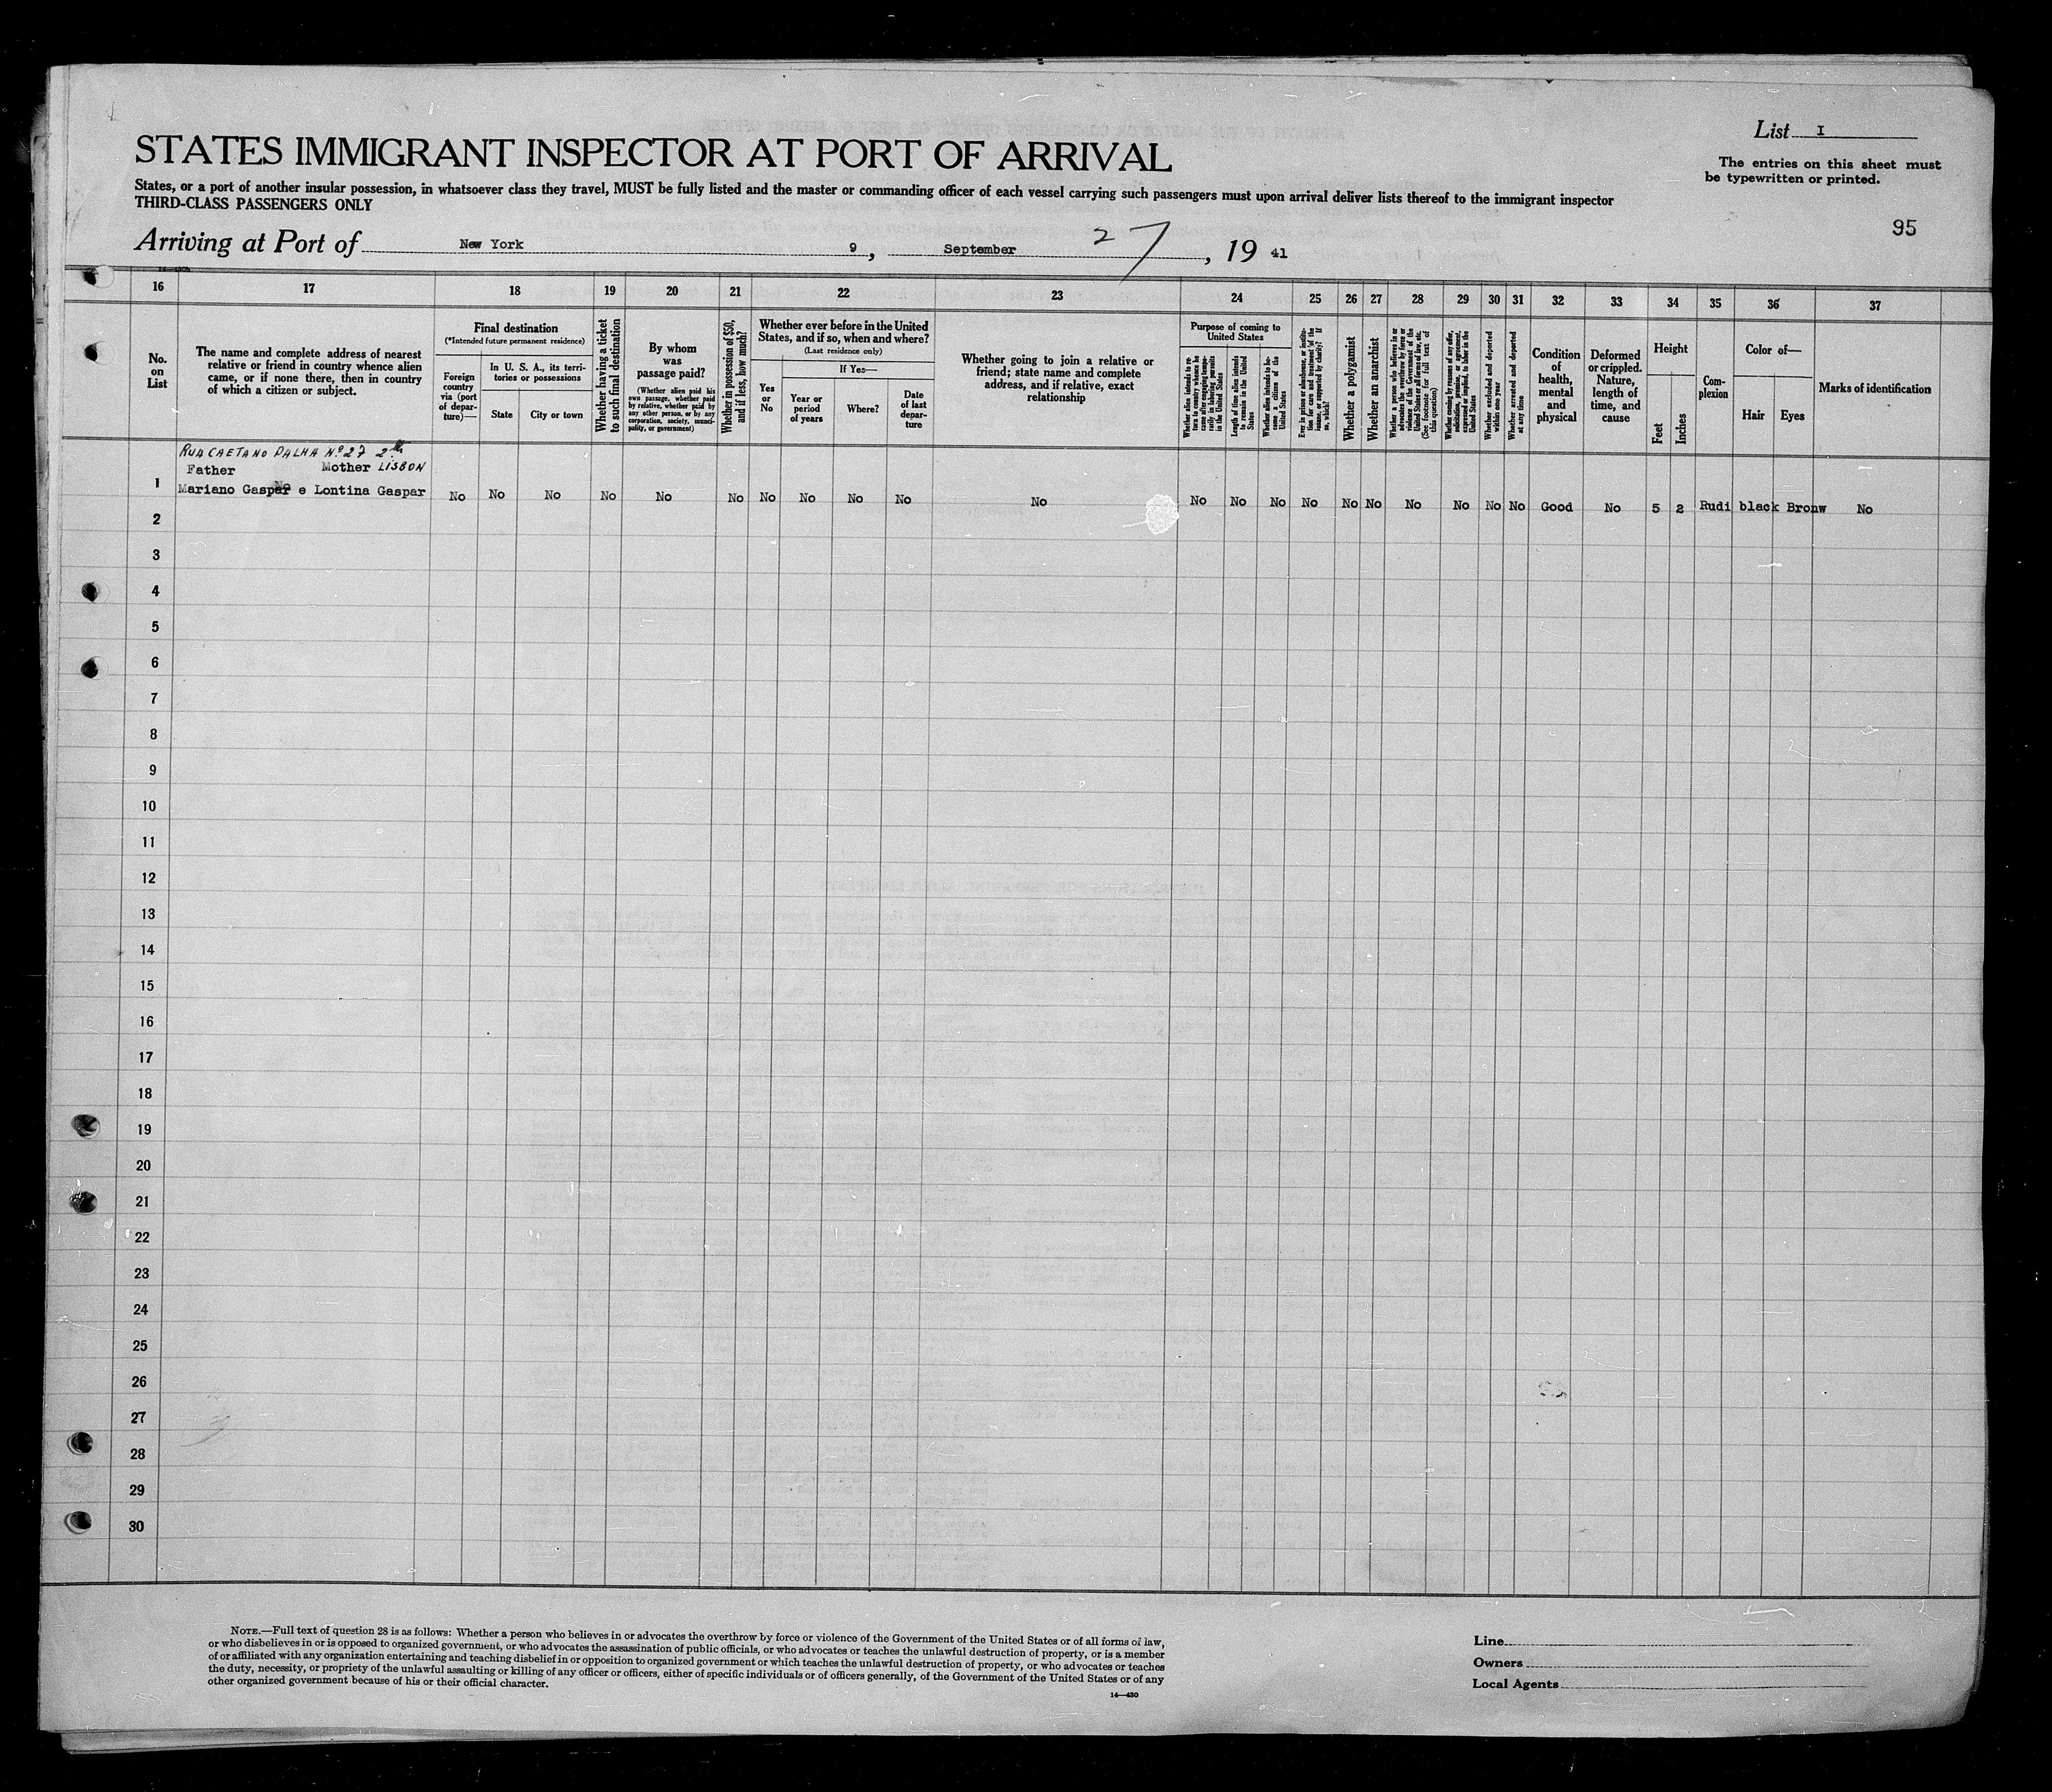 List I
STATES IMMIGRANT INSPECTOR AT PORT OF ARRIVAL
The entries on this sheet must
be typewritten or printed.
States, or a port of another insular possession, in whatsoever class they travel, MUST be fully listed and the master or commanding officer of each vessel carrying such passengers must upon arrival deliver lists thereof to the immigrant inspector
THIRD-CLASS PASSENGERS ONLY
95
Arriving at Port of New York 9, September 27, 19 41
16 17 18 19 20 21 22 23 24 25 26 27 28 29 30 31 32 33 34 35 36 37
No.
on
List
The name and complete address of nearest
relative or friend in country whence alien
came, or if none there, then in country
of which a citizen or subject.
Final destination
(*Intended future permanent residence)
Foreign
country
via (port
of depar-
ture)—
In U. S. A., its terri-
tories or possessions
State
City or town
Whether having a ticket
to such final destination
By whom
was
passage paid?
(Whether alien paid his
own passage, whether paid
by relative, whether paid by
any other person, or by any
corporation, society, munici-
pality, or government)
Whether in possession of $50,
and if less, how much?
Whether ever before in the United
States, and if so, when and where?
(Last residence only)
Yes
or
No
If Yes—
Year or
period
of years
Where?
Date
of last
depar-
ture
Whether going to join a relative or
friend; state name and complete
address, and if relative, exact
relationship
Purpose of coming to
United States
Whether alien intends to re-
turn to country whence he
came after engaging tempo-
rarily in laboring pursuits
in the United States
Length of time alien intends
to remain in the United
States
Whether alien intends to be-
come a citizen of the
United States
Ever in prison or almshouse, or institu-
tion for care and treatment of the
insane, or supported by charity? If
so, which?
Whether a polygamist
Whether an anarchist
Whether a person who believes in or
advocates the overthrow by force or
violence of the Government of the
United States or all forms of law, etc.
(See footnote for full text of
this question)
Whether coming by reasons of any offer,
solicitation, promise, or agreement,
expressed or implied, to labor in the
United States
Whether excluded and deported
within one year
Whether arrested and deported
at any time
Condition
of
health,
mental
and
physical
Deformed
or crippled.
Nature,
length of
time, and
cause
Height
Feet
Inches
Com-
plexion
Color of—
Hair
Eyes
Marks of identification
RUA CAETANO PALHA Nº 27 2th
Father Mother LISBON
1 Mariano Gaspar e Lontina Gaspar No No No No No No No No No No No No No No No No No No No No No Good No 5 2 Rudi black Bronw No
2
3
4
5
6
7
8
9
10
11
12
13
14
15
16
17
18
19
20
21
22
23
24
25
26
27
28
29
30
NOTE.—Full text of question 28 is as follows: Whether a person who believes in or advocates the overthrow by force or violence of the Government of the United States or of all forms of law,
or who disbelieves in or is opposed to organized government, or who advocates the assassination of public officials, or who advocates or teaches the unlawful destruction of property, or is a member
of or affiliated with any organization entertaining and teaching disbelief in or opposition to organized government or which teaches the unlawful destruction of property, or who advocates or teaches
the duty, necessity, or propriety of the unlawful assaulting or killing of any officer or officers, either of specific individuals or of officers generally, of the Government of the United States or of any
other organized government because of his or their official character.
14—430
Line
Owners
Local Agents